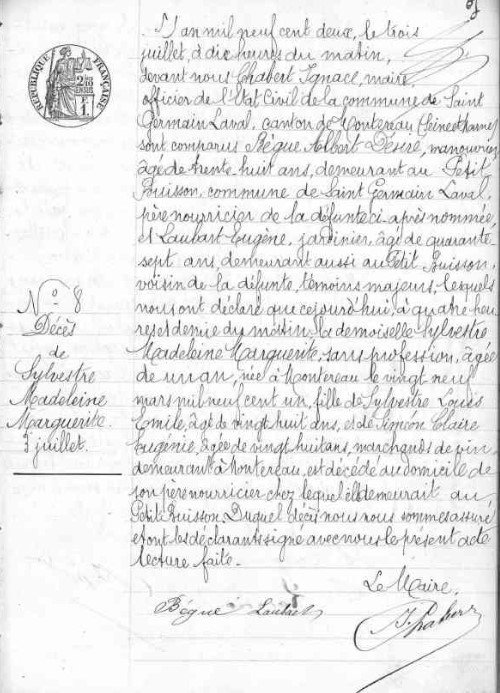 RÉPUBLIQUE FRANÇAISE
L'an mil neuf cent deux, le trois
juillet, à dix heures du matin,
devant nous Chabert Ignace, maire
officier de l'Etat Civil de la commune de Saint
Germain Laval, canton de Montereau (Seine et Marne)
sont comparus Bègue Albert Désiré, manouvrier
âgé de trente huit ans, demeurant au Petit
Buisson, commune de Saint Germain Laval,
père nourricier de la défunte ci après nommée,
et Laubart Eugène, jardinier, âgé de quarante
sept ans, demeurant aussi au Petit Buisson,
voisin de la défunte, témoins majeurs, lesquels
nous ont déclaré que cejourd'hui, à quatre heu
res et demie du matin, la demoiselle Sylvestre
Madeleine Marguerite, sans profession, âgée
de un an, née à Montereau le vingt neuf
mars mil neuf cent un, fille de Sylvestre Louis
Emile, âgé de vingt huit ans, et de Simon Claire
Eugénie, âgée de vingt huit ans, marchands de vin
demeurant à Montereau, est décédé au domicile de
son père nourricier chez lequel elle demeurait au
Petit Buisson. Duquel décès nous nous sommes assuré
et ont les déclarants signé avec nous le présent acte
lecture faite.
N° 8
Décès
de
Sylvestre
Madeleine
Marguerite.
3 juillet.
Le Maire,
Bègue Laubart
I. Chabert